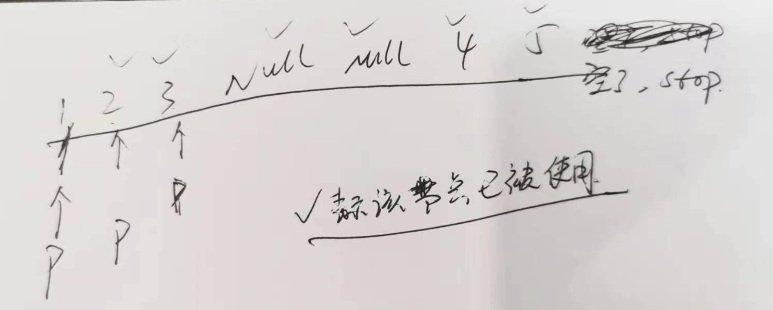 1 2 3 Null null 4 5
空了, stop.
P P P
✓表示该节点已被使用.